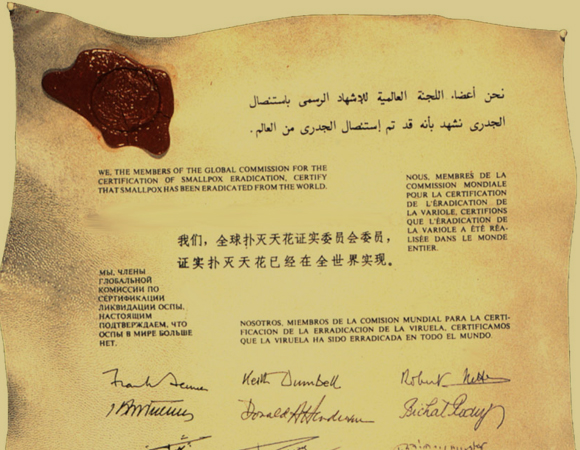 نحن أعضاء اللجنة العالمية للإشهاد الرسمى باستئصال
الجدرى نشهد بأنه قد تم إستئصال الجدرى من العالم.
WE, THE MEMBERS OF THE GLOBAL COMMISSION FOR THE
CERTIFICATION OF SMALLPOX ERADICATION, CERTIFY
THAT SMALLPOX HAS BEEN ERADICATED FROM THE WORLD.
NOUS, MEMBRES DE LA
COMMISSION MONDIALE
POUR LA CERTIFICATION
DE L'ÉRADICATION DE
LA VARIOLE, CERTIFIONS
QUE L'ÉRADICATION DE
LA VARIOLE A ÉTÉ RÉA-
LISÉE DANS LE MONDE
ENTIER.
我们，全球扑灭天花证实委员会委员，
证实扑灭天花已经在全世界实现。
МЫ, ЧЛЕНЫ
ГЛОБАЛЬНОЙ
КОМИССИИ ПО
СЕРТИФИКАЦИИ
ЛИКВИДАЦИИ ОСПЫ,
НАСТОЯЩИМ
ПОДТВЕРЖДАЕМ, ЧТО
ОСПЫ В МИРЕ БОЛЬШЕ
НЕТ.
NOSOTROS, MIEMBROS DE LA COMISION MUNDIAL PARA LA CERTI-
FICACION DE LA ERRADICACION DE LA VIRUELA, CERTIFICAMOS
QUE LA VIRUELA HA SIDO ERRADICADA EN TODO EL MUNDO.
Frank Fenner
Keith Dumbell
Robert Netter
Donald A Henderson